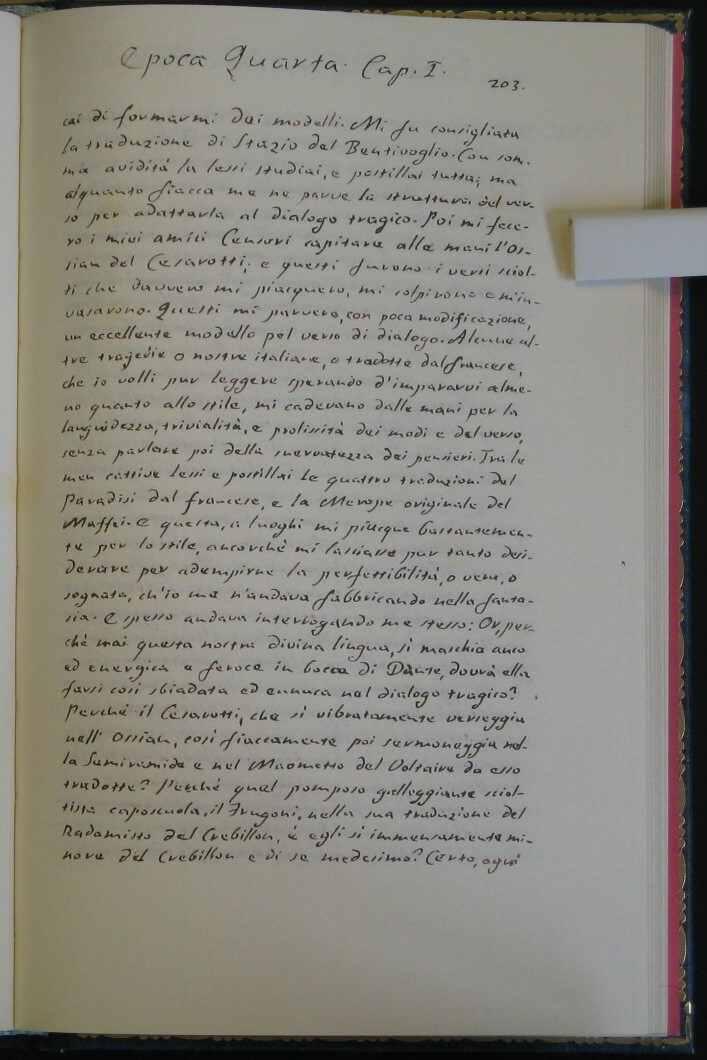 Epoca Quarta. Cap. I.
203.
cai di formarmi dei modelli. Mi fu consigliata
la traduzione di Stazio del Bentivoglio. Con som-
ma avidità la lessi studiai, e postillai tutta; ma
alquanto fiacca me ne parve la struttura del ver-
so per adattarla al dialogo tragico. Poi mi fece-
ro i miei amici Censori capitare alle mani l'Os-
sian del Cesarotti; e questi furono i versi sciol-
ti che davvero mi piacquero, mi colpirono e m'in-
vasarono. Questi mi parvero, con poca modificazione,
un eccellente modello pel verso di dialogo. Alcune al-
tre tragedie o nostre italiane, o tradotte dal francese,
che io volli pur leggere sperando d'impararvi alme-
no quanto allo stile, mi cadevano dalle mani per la
languidezza, trivialità, e prolissità dei modi e del verso,
senza parlare poi della snervatezza dei pensieri. Tra le
men cattive lessi e postillai le quattro traduzioni del
Paradisi dal francese, e la Merope originale del
Maffei. E questa, a luoghi mi piacque bastantemen-
te per lo stile, ancorchè mi lasciasse pur tanto desi-
derare per adempirne la perfettibilità, o vera, o
sognata, ch'io me n'andava fabbricando nella fanta-
sia. E spesso andava interrogando me stesso: Or, per-
chè mai questa nostra divina lingua, sì maschia anco
ed energica e feroce in bocca di Dante, dovrà ella
farsi così sbiadata ed eunuca nel dialogo tragico?
Perchè il Cesarotti, che sì vibratamente verseggia
nell' Ossian, così fiaccamente poi sermoneggia nel-
la Semiramide e nel Maometto del Voltaire da esso
tradotte? Perchè quel pomposo galleggiante sciol-
tista caposcuola, il Frugoni, nella sua traduzione del
Radamisto del Crebillon, è egli sì immensamente mi-
nore del Crebillon e di se medesimo? Certo, ogni